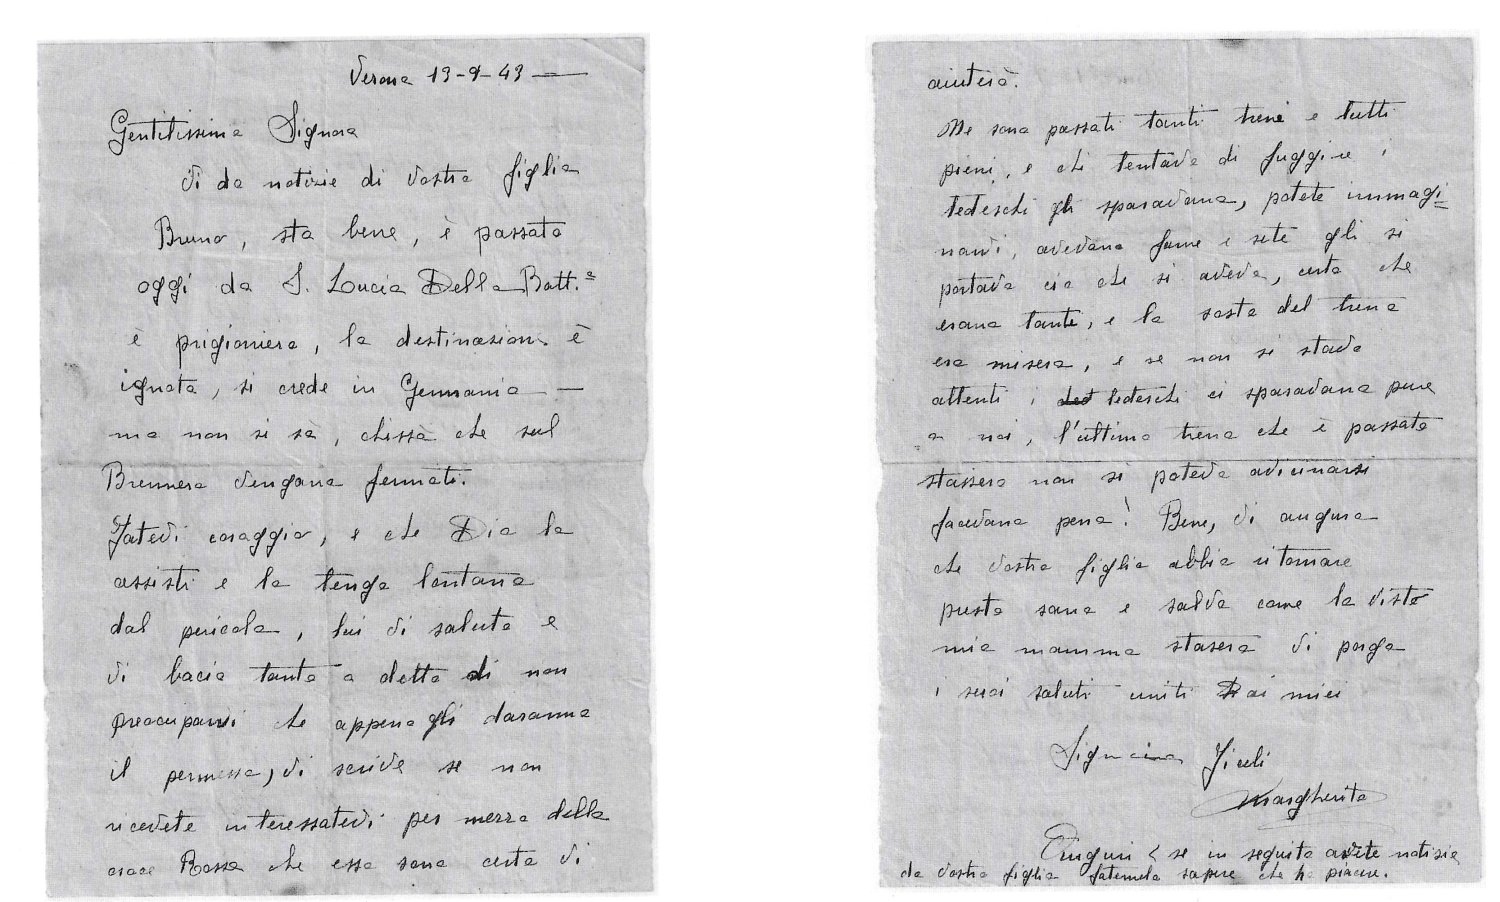 Verona 13-9-43
Gentilissima Signora
Vi do notizie di vostro figlio
Bruno, sta bene, è passato
oggi da S. Lucia Della Batt.a
è prigioniero, la destinazione è
ignota, si crede in Germania —
ma non si sà, chissà che sul
Brennero vengano fermati.
Fatevi coraggio, e che Dio lo
assisti e lo tenga lontano
dal pericolo, lui vi saluta e
vi bacia tanto a detto di non
preocuparvi che appena gli daranno
il permesso, vi scrive se non
ricevete interessatevi per mezzo della
croce Rossa che essa sono certa vi
aiuterà.
Ne sono passati tanti treni e tutti
pieni, e chi tentava di fuggire i
tedeschi gli sparavano, potete immagi=
narvi, avevano fame e sete gli si
portava ciò che si aveva, certo che
erano tanti, e la sosta del treno
era misera, e se non si stava
attenti i tedeschi ci sparavano pure
a noi, l'ultimo treno che è passato
stassera non si poteva avicinarsi
facevano pena! Bene, vi auguro
che vostro figlio abbia ritornare
presto sano e salvo come lo visto
mia mamma stasera vi porgo
i suoi saluti uniti ai miei
Signorina Ficoli
Margherita
Auguri e se in seguito avete notizie
di vostro figlio fatemelo sapere che ho piacere.